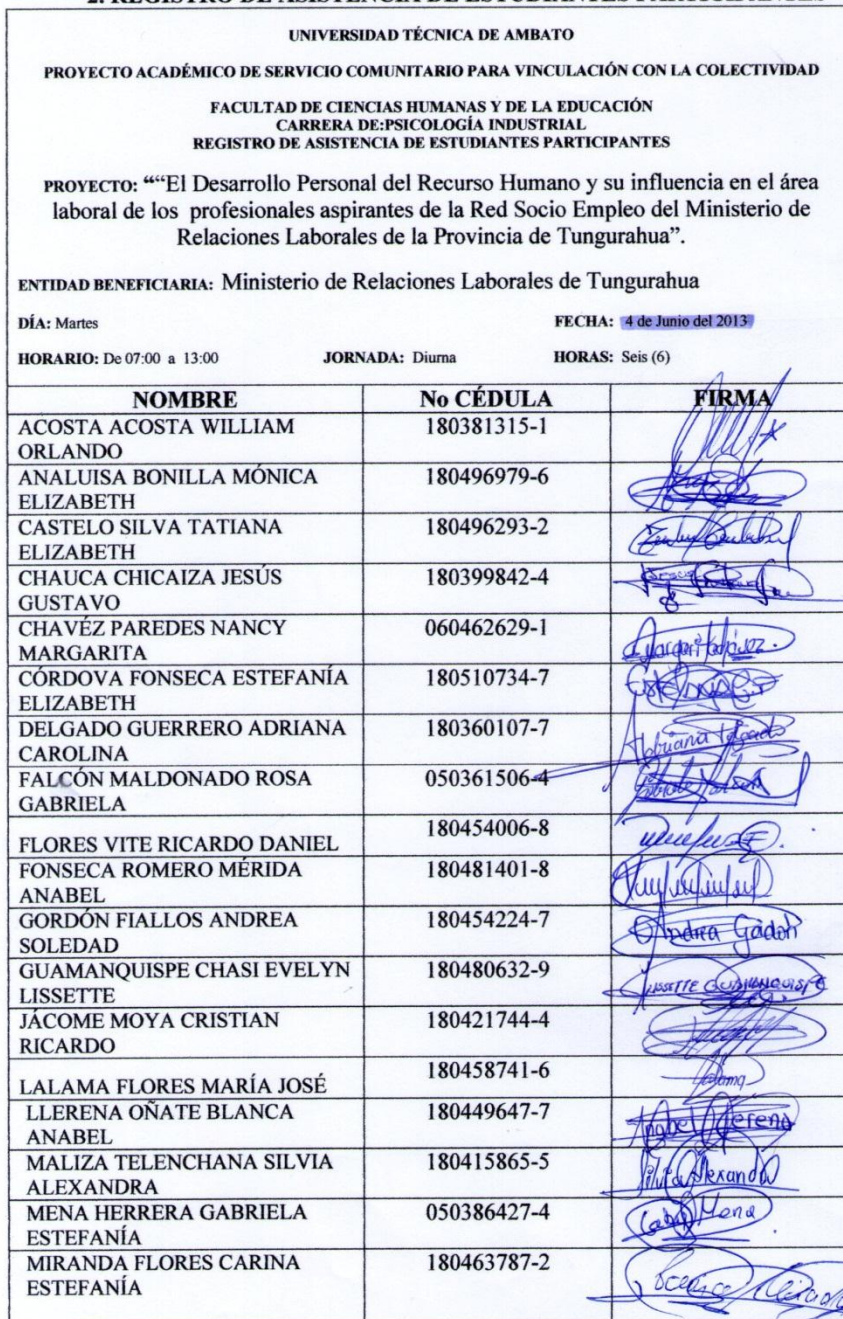 2. REGISTRO DE ASISTENCIA DE ESTUDIANTES PARTICIPANTES
UNIVERSIDAD TÉCNICA DE AMBATO
PROYECTO ACADÉMICO DE SERVICIO COMUNITARIO PARA VINCULACIÓN CON LA COLECTIVIDAD
FACULTAD DE CIENCIAS HUMANAS Y DE LA EDUCACIÓN
CARRERA DE:PSICOLOGÍA INDUSTRIAL
REGISTRO DE ASISTENCIA DE ESTUDIANTES PARTICIPANTES
PROYECTO: ““El Desarrollo Personal del Recurso Humano y su influencia en el área
laboral de los profesionales aspirantes de la Red Socio Empleo del Ministerio de
Relaciones Laborales de la Provincia de Tungurahua”.
ENTIDAD BENEFICIARIA: Ministerio de Relaciones Laborales de Tungurahua
DÍA: Martes FECHA: 4 de Junio del 2013
HORARIO: De 07:00 a 13:00 JORNADA: Diurna HORAS: Seis (6)
NOMBRE No CÉDULA FIRMA
ACOSTA ACOSTA WILLIAM 180381315-1
ORLANDO
ANALUISA BONILLA MÓNICA 180496979-6
ELIZABETH
CASTELO SILVA TATIANA 180496293-2
ELIZABETH
CHAUCA CHICAIZA JESÚS 180399842-4
GUSTAVO
CHAVÉZ PAREDES NANCY 060462629-1
MARGARITA
CÓRDOVA FONSECA ESTEFANÍA 180510734-7
ELIZABETH
DELGADO GUERRERO ADRIANA 180360107-7
CAROLINA Adriana Delgado
FALCÓN MALDONADO ROSA 050361506-4
GABRIELA
FLORES VITE RICARDO DANIEL 180454006-8
FONSECA ROMERO MÉRIDA 180481401-8
ANABEL
GORDÓN FIALLOS ANDREA 180454224-7
SOLEDAD Andrea
GUAMANQUISPE CHASI EVELYN 180480632-9
LISSETTE LISSETTE GUAMANQUISPE
JÁCOME MOYA CRISTIAN 180421744-4
RICARDO
LALAMA FLORES MARÍA JOSÉ 180458741-6
LLERENA OÑATE BLANCA 180449647-7
ANABEL Anabel Llerena
MALIZA TELENCHANA SILVIA 180415865-5
ALEXANDRA Silvia Alexandra
MENA HERRERA GABRIELA 050386427-4
ESTEFANÍA Gaby Mena
MIRANDA FLORES CARINA 180463787-2
ESTEFANÍA